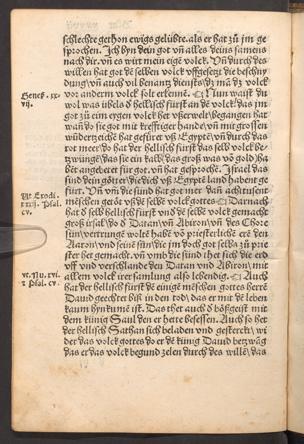 schlechte gethon ewigs gelübte. als er hat zů jm ge
sprochen. Ich byn dein got vñ alles deins samens
nach dir. vñ es würt mein eige volck. Vñ durch des
willen hat got dē selben volck vffgesetzt die beschny
dung/ vñ auch vil benanng dienst/ dz mā dz volck
vor andern volck solt erkennē. Nun waist du
wol was übels d hellisch fürst an dē volck/ das jm
got zů eim ergen volck het vßerwelt/ begangen hat
wan do sie got mit krefftiger hande/ vñ mit grossen
wūderzeichē hat gefürt vß Egypto/ vñ durch das
rot meer/ do hat der hellisch fürst das selb volck be-
tzwungē/ das sie ein kalb/ das groß was vō gold/ ha
bēt angebetet für got/ vñ hat gesprochē. Israel das
sind dein götter/ die dich vß Egypto land haben ge
fürt. Vñ vm die sünd hat got mer dañ achttusent
mēschen gerōt vß dē selbē volck gottes Darnach
hat d selb hellisch fürst vnd dē selbē volck gemacht
groß irsal/ do d Datan vñ Abiron/ vñ des Chore
sün/ vertrungē welt haben vō priesterlichē erē den
Aaron/ vnd seine sün/ die jm doch got selbs zů prie
ster het gemacht. vñ vmb die sünd thet sich die erd
vff vnd verschlande den Datan vnd Abiron/ mit
allem volck irer samlung also lebendig. Auch
hat der hellisch fürst dē einigē mēschen gottes herrē
Dauid geechtet biß in den tod/ das er mit dē leben
kaum hynkumē ist. Das thet auch d bößgeist mit
dem künig Saul den er hette besessen. Auch so het
der hellisch Sathan sich beladen vnd gesterckt/ wi
der das volck gottes do er dē künig Dauid betzwāg
das er das volck begund zelen durch des willē/ das
Genes. xx-
vij.
Vt Exodi.
xxxij. Psal.
cv.
vt. Nu. xvi.
z Psal. cv.